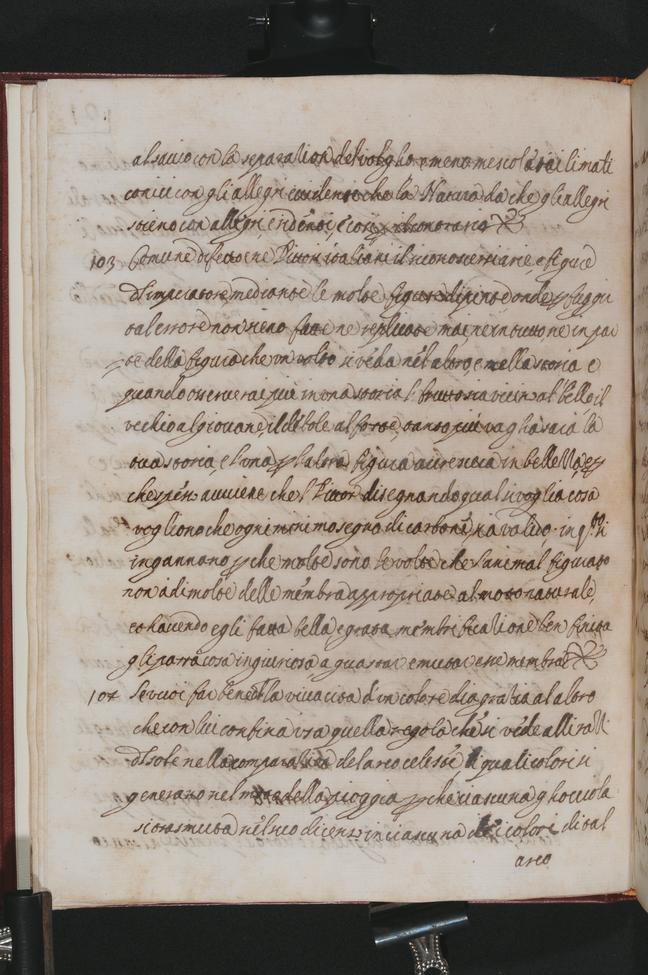 al savio con la separation del volgho e meno mescolarai li mati
conici con gli allegri evidenti che la Natura da che gli allegri
stieno con allegri, e ridenti, e cosi p il contrario
103 Comune difetto ne Pittori italiani il riconoscersi arie, e figure
d'Impciatore mediante le molte figure dipinte onde p fuggir
tal errore non sieno fatte ne replicate mai ne in tutto ne in par
te della figura che un volto si veda nel altro e nella storia e
quando osserverai piu in una storia l bruttto sia vicin al bello il
vecchio al giovane, il debole al forte, tanto piu vagha sara la
tua storia, e l'una p l'altra figura accrescera in bellezza p
che spess avviene che l' Pittor disegnando qual si voglia cosa
vogliono che ogni minimo segno di carbone sia valido in qsto si
ingannano p che molte sono le volte che l'animal figurato
non à di molte delle membra appropriate al moto naturale
et havendo egli fatta bella e grata membrificatione ben finita
gli parra cosa ingiuriosa a guastar e mutar esse membra
104 Se vuoi far bene ch la vicacita d'un colore dia gratia al altro
che con lui confina usa quella regola che si vede alli razzi
d'sole nella comparatione del arco celeste li quali colori si
generano nel moto della pioggia p che ciascuna ghocciola
si trasmuta nel suo dicenso in ciascuna dei colori di tal
arco